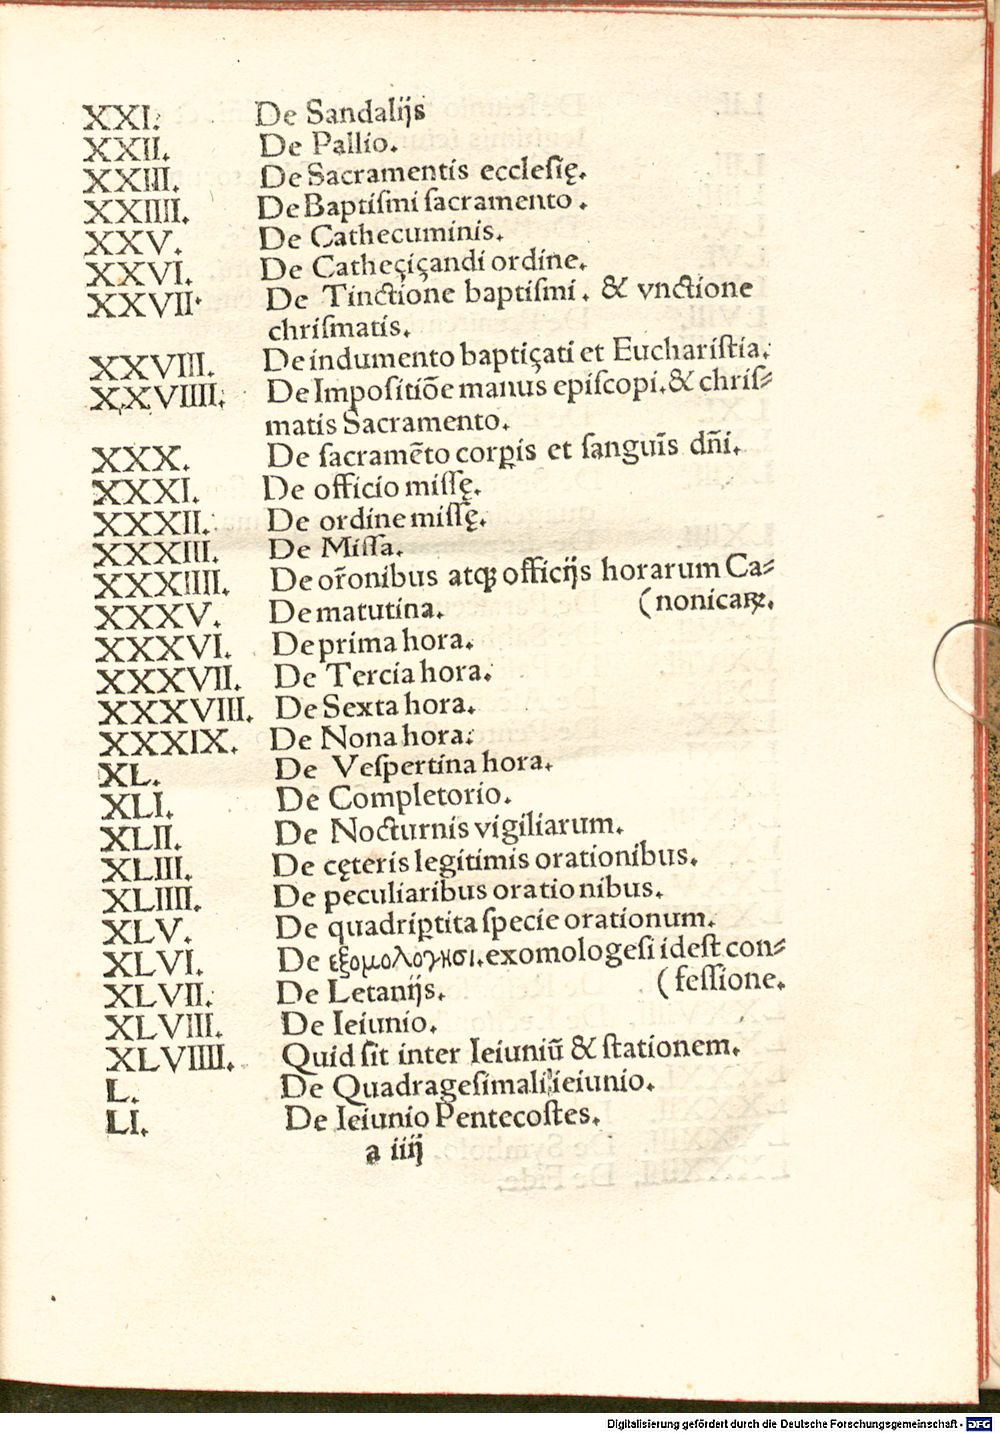 XXI. De Sandalijs
XXII. De Pallio.
XXIII. De Sacramentis ecclesię.
XXIIII. De Baptiſmi ſacramento.
XXV. De Cathecuminis.
XXVI. De Catheçiçandi ordine.
XXVII. De Tinctione baptiſmi. & vnctione
chriſmatis.
XXVIII. De indumento baptiçati et Euchariſtia.
XXVIIII. De Impoſitiõe manus epiſcopi.& chriſ⸗
matis Sacramento.
XXX. De ſacramẽto corꝑis et ſanguĩs dñi.
XXXI. De officio miſſę.
XXXII. De ordine miſſę.
XXXIII. De Miſſa.
XXXIIII. De or̃onibus atqꝫ officijs horarum Ca⸗
(nonicaꝝ.
XXXV. De matutina.
XXXVI. De prima hora.
XXXVII. De Tercia hora.
XXXVIII. De Sexta hora.
XXXIX. De Nona hora.
XL. De Veſpertina hora.
XLI. De Completorio.
XLII. De Nocturnis vigiliarum.
XLIII. De cęteris legitimis orationibus.
XLIIII. De peculiaribus orationibus.
XLV. De quadriꝑtita ſpecie orationum.
XLVI. De εξομολογησι.exomologeſi ideſt con⸗
(feſſione.
XLVII. De Letanijs.
XLVIII. De Ieiunio.
XLVIIII. Quid ſit inter Ieiuniũ & ſtationem.
L. De Quadrageſimali ieiunio.
LI. De Ieiunio Pentecoſtes.
a iiij
Digitalisierung gefördert durch die Deutsche Forschungsgemeinschaft - DFG